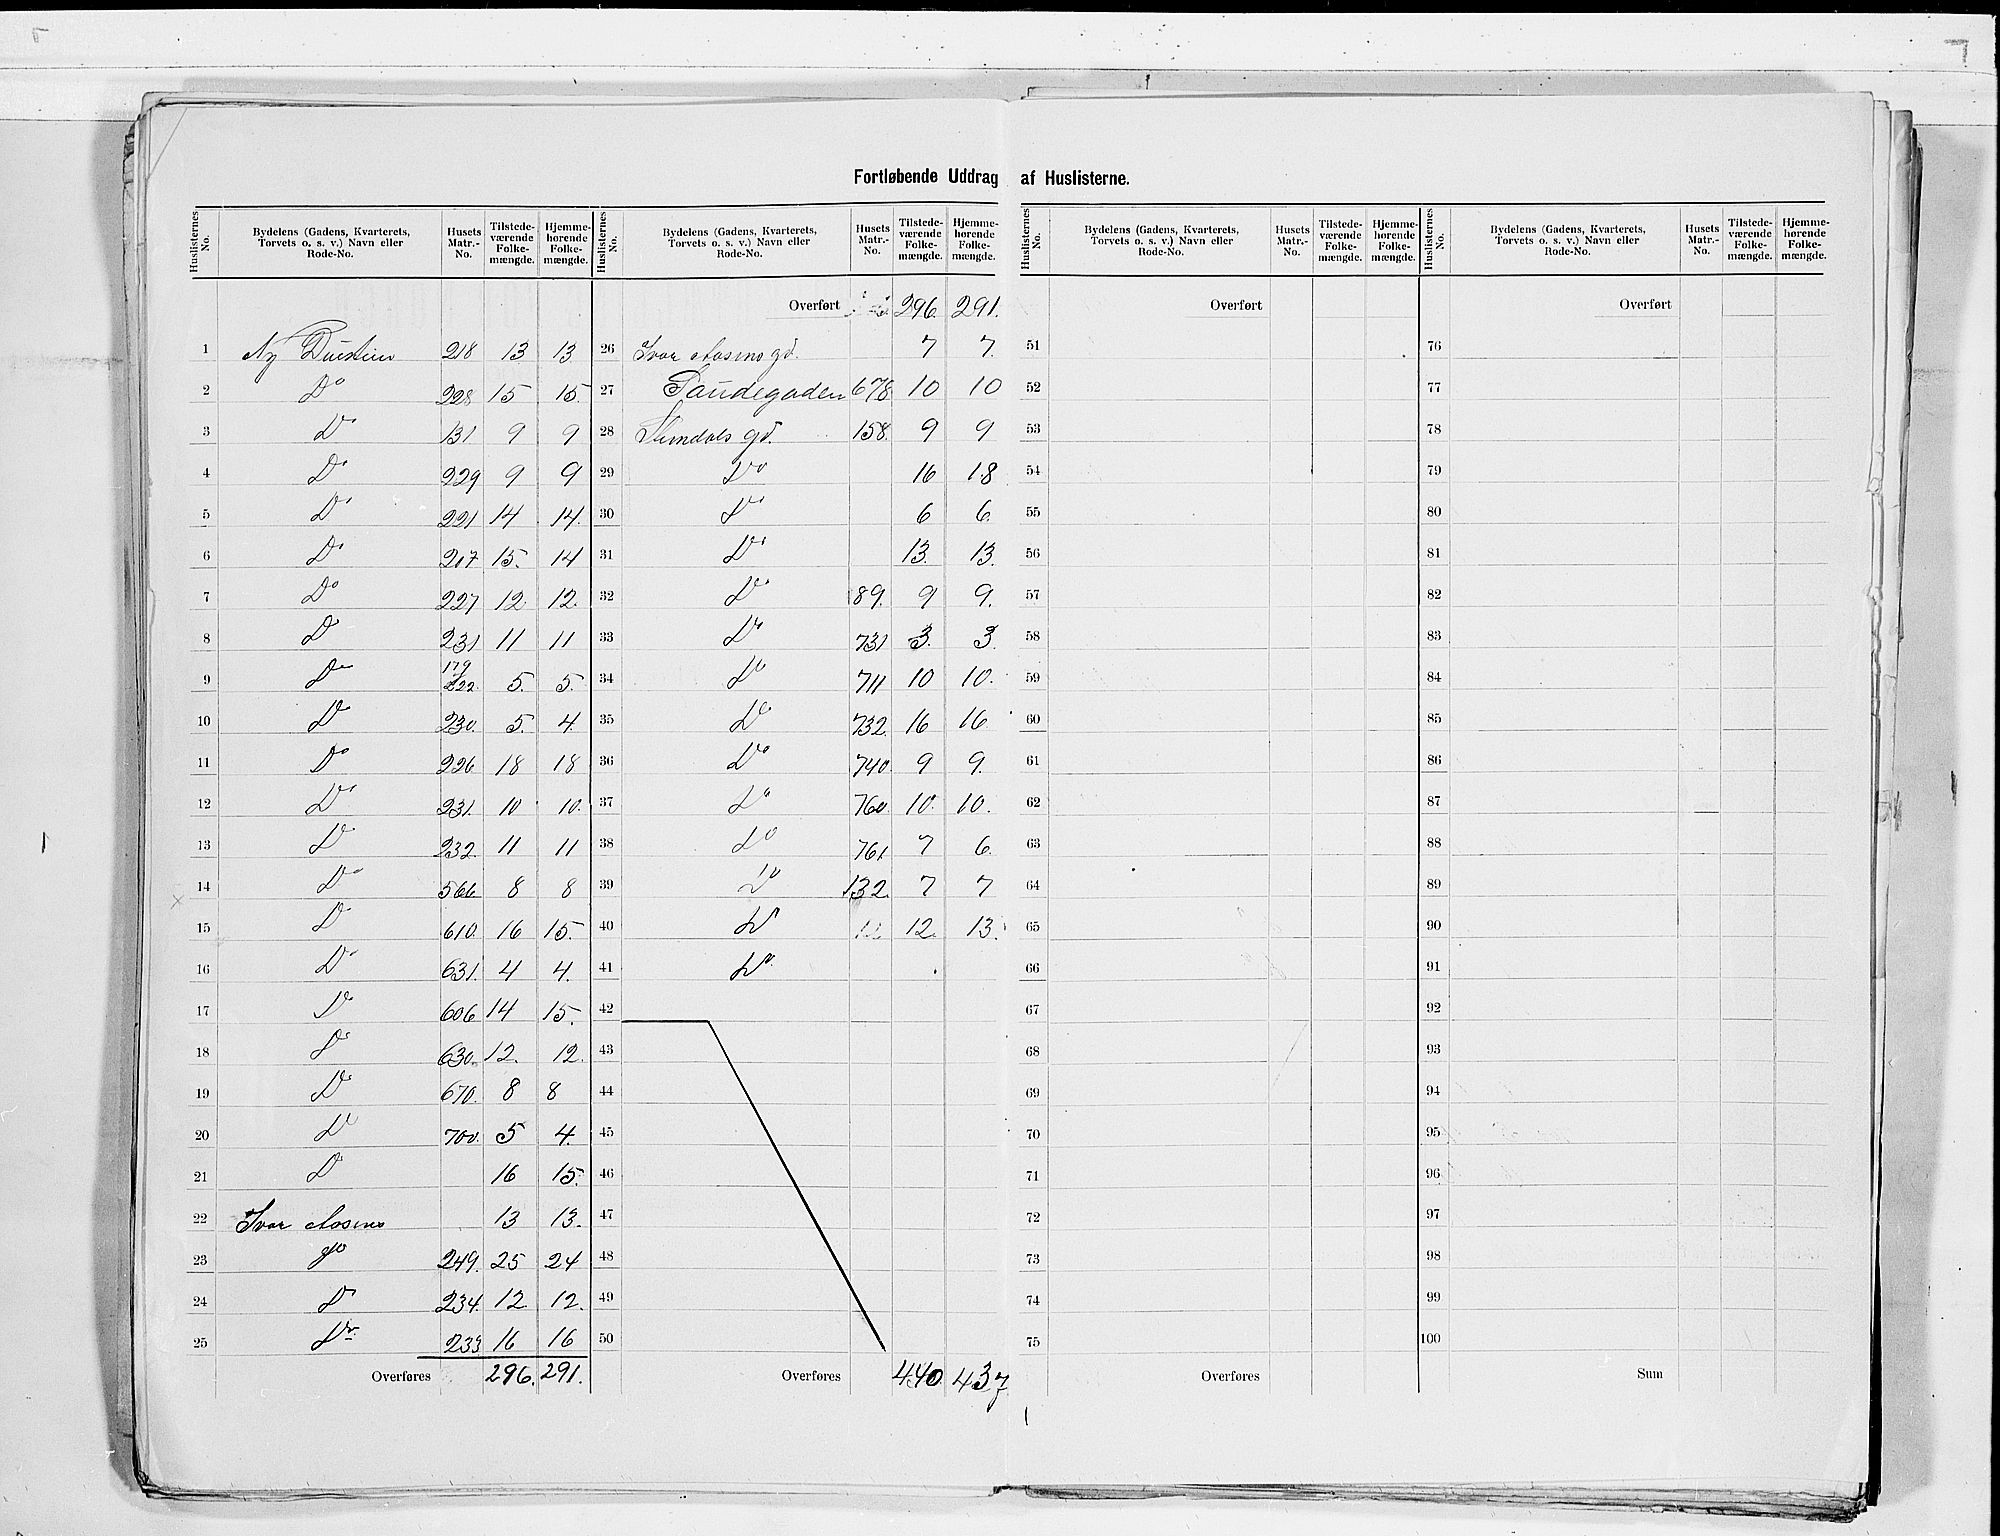 Fortløbende Uddrag af Huslisterne.
Huslisternes No. | Bydelens (Gadens, Kvarterets, Torvets o. s. v.) Navn eller Rode-No. | Husets Matr.-No. | Tilstede-værende Folke-mængde. | Hjemme-hørende Folke-mængde.
1 Ny 218 13 13
2 Do 228 15 15.
3 Do 131 9 9
4 Do 229 9 9
5 Do 221 14 14.
6 Do 207 15. 14
7 Do 227 12 12.
8 Do 231 11 11
9 Do 179 222. 5. 5.
10 Do 230. 5. 4.
11 Do 226 18 18
12 Do 231. 10 10.
13 Do 232. 11 11
14 Do 566 8 8
15 Do 610. 16 15.
16 Do 631. 4 4.
17 Do 606 14 15.
18 Do 630. 12. 12.
19 Do 670. 8 8
20 Do 700. 5 4.
21 Do 16 15.
22 Ivar Aasens 13 13.
23 Do 249. 25 24
24 Do 234. 12 12.
25 Do 233 16 16
Overføres 296. 291.
Huslisternes No. | Bydelens (Gadens, Kvarterets, Torvets o. s. v.) Navn eller Rode-No. | Husets Matr.-No. | Tilstede-værende Folke-mængde. | Hjemme-hørende Folke-mængde.
Overført 296. 291.
26 Ivar Aasens gd. 7 7.
27 678. 10 10
28 gd. 158. 9 9
29 Do 16 18
30 Do 6 6.
31 Do 13. 13.
32 Do 89. 9 9.
33 Do 731 3. 3.
34 Do 711 10 10.
35 Do 732. 16 16.
36 Do 740. 9 9.
37 Do 760. 10. 10.
38 Do 761 7 6.
39 Do 132. 7 7
40 Do 12. 13.
41 Do
42
43
44
45
46
47
48
49
50
Overføres 440. 437
Huslisternes No. | Bydelens (Gadens, Kvarterets, Torvets o. s. v.) Navn eller Rode-No. | Husets Matr.-No. | Tilstede-værende Folke-mængde. | Hjemme-hørende Folke-mængde.
Overført
51
52
53
54
55
56
57
58
59
60
61
62
63
64
65
66
67
68
69
70
71
72
73
74
75
Overføres
Huslisternes No. | Bydelens (Gadens, Kvarterets, Torvets o. s. v.) Navn eller Rode-No. | Husets Matr.-No. | Tilstede-værende Folke-mængde. | Hjemme-hørende Folke-mængde.
Overført
76
77
78
79
80
81
82
83
84
85
86
87
88
89
90
91
92
93
94
95
96
97
98
99
100
Sum